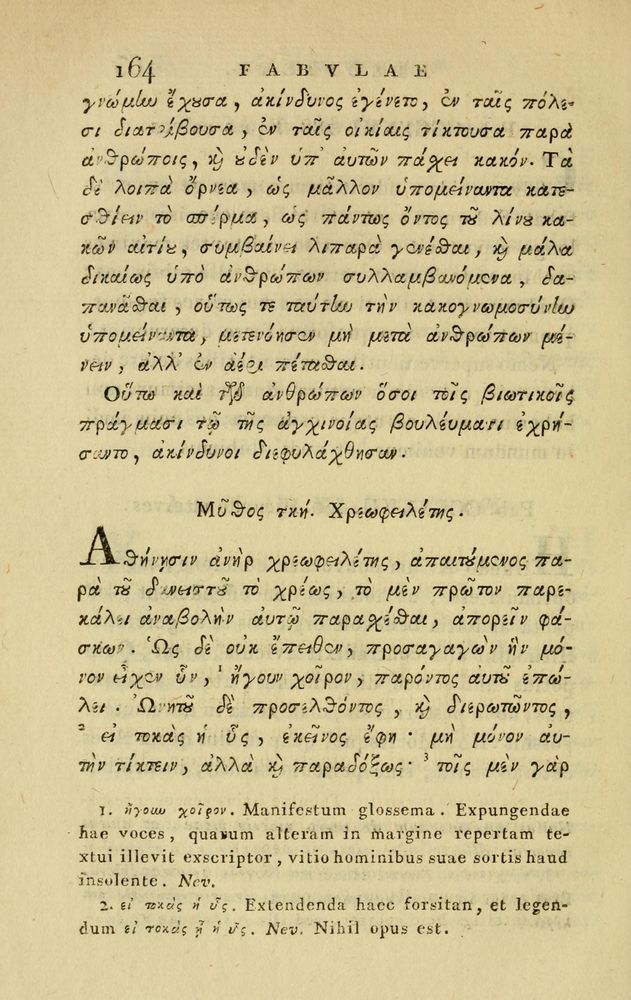 164 FABVLAE
γνώμην ἔχουσα, ἀκίνδυνος ἐγένετο, ἐν ταῖς πόλε-
σι διατρίβουσα, ἐν ταῖς οἰκίαις τίκτουσα παρὰ
ἀνθρώποις, καὶ οὐδὲν ὑπ' αὐτῶν πάσχει κακόν. Τὰ
δὲ λοιπὰ ὄρνεα, ὡς μᾶλλον ὑπομείναντα κατε-
σθίειν τὸ σπέρμα, ὡς πάντως ὄντος τοῦ λίνου κα-
κῶν αἰτίου, συμβαίνει λιπαρὰ γενέσθαι, καὶ μάλα
δικαίως ὑπὸ ἀνθρώπων συλλαμβανόμενα, δα-
πανᾶσθαι, οὕτως τε ταύτην τὴν κακογνωμοσύνην
ὑπομείναντα, μετενόησεν μὴ μετὰ ἀνθρώπων μέ-
νειν, ἀλλ' ἐν ἀέρι πέτασθαι.
Οὕτω καὶ τῶν ἀνθρώπων ὅσοι τοῖς βιωτικοῖς
πράγμασι τῷ τῆς ἀγχινοίας βουλεύματι ἐχρή-
σαντο, ἀκίνδυνοι διεφυλάχθησαν.
Μῦθος τκή. Χρεωφειλέτης.
Ἀθήνησιν ἀνὴρ χρεωφειλέτης, ἀπαιτούμενος πα-
ρὰ τοῦ δανειστοῦ τὸ χρέως, τὸ μὲν πρῶτον παρε-
κάλει ἀναβολὴν αὐτῷ παρασχέσθαι, ἀπορεῖν φά-
σκων. Ὡς δὲ οὐκ ἔπειθεν, προσαγαγὼν ἣν μό-
νον εἶχεν ὗν, ¹ ἤγουν χοῖρον, παρόντος αὐτοῦ ἐπώ-
λει. Ὠνητοῦ δὲ προσελθόντος, καὶ διερωτῶντος,
² εἰ τοκὰς ἡ ὗς, ἐκεῖνος ἔφη· μὴ μόνον αὐ-
τὴν τίκτειν, ἀλλὰ καὶ παραδόξως· ³ τοῖς μὲν γὰρ
1. ἤγουν χοῖρον. Manifestum glossema. Expungendae
hae voces, quarum alteram in margine repertam te-
xtui illevit exscriptor, vitio hominibus suae sortis haud
insolente. Nev.
2. εἰ τοκάς ἡ ὗς. Extendenda haec forsitan, et legen-
dum εἰ τοκὰς ᾖ ἡ ὗς. Nev. Nihil opus est.